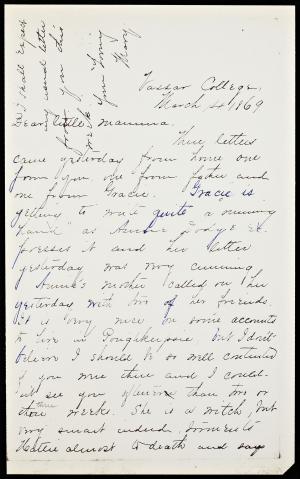 Vassar College,
March 4, 1869.
Dear little mamma.
Three letters
came yesterday from home one
from you, one from father and
one from Gracie. Gracie is
getting to write quite a "running
hand" as Annie expresses it and her letter
yesterday was very cunning.
Annie's mother called on her
yesterday with two of her friends.
It is very nice on some accounts
to live in Poughkeepsie, but I don't
believe I should be so well contented
if you were there and I could-
n't see you oftener than two or
three weeks. She is a witch, but
very smart indeed.
Hattie almost to death and says
I shall expect
my usual letter
from you this
week.
Your loving
Mary